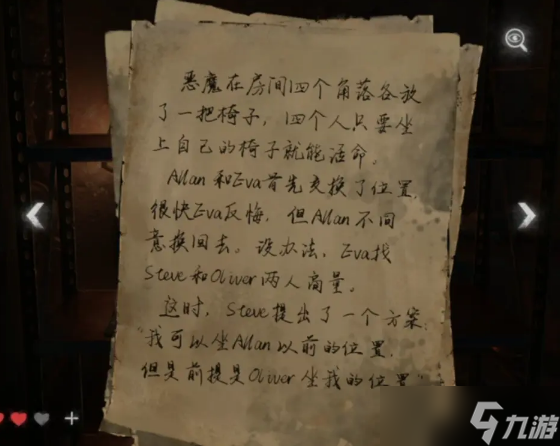 恶魔在房间四个角落各放
了一把椅子，四个人只要坐
上自己的椅子就能活命。
Allan和Eva首先交换了位置，
很快Eva反悔，但Allan不同
意换回去。没办法，Eva找
Steve和Oliver两人商量。
这时，Steve提出了一个方案，
“我可以坐Allan以前的位置，
但是前提是Oliver坐我的位置”
九游